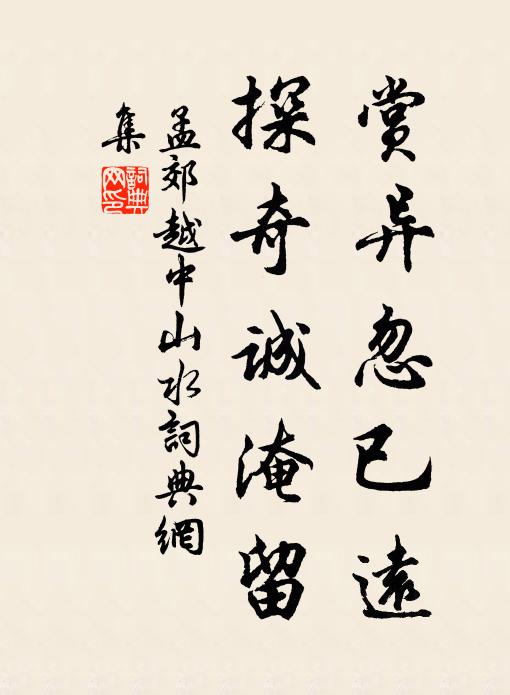 赏异忽已遠
探奇誠淹留
孟郊越中山水詞典網
集
詞典網印